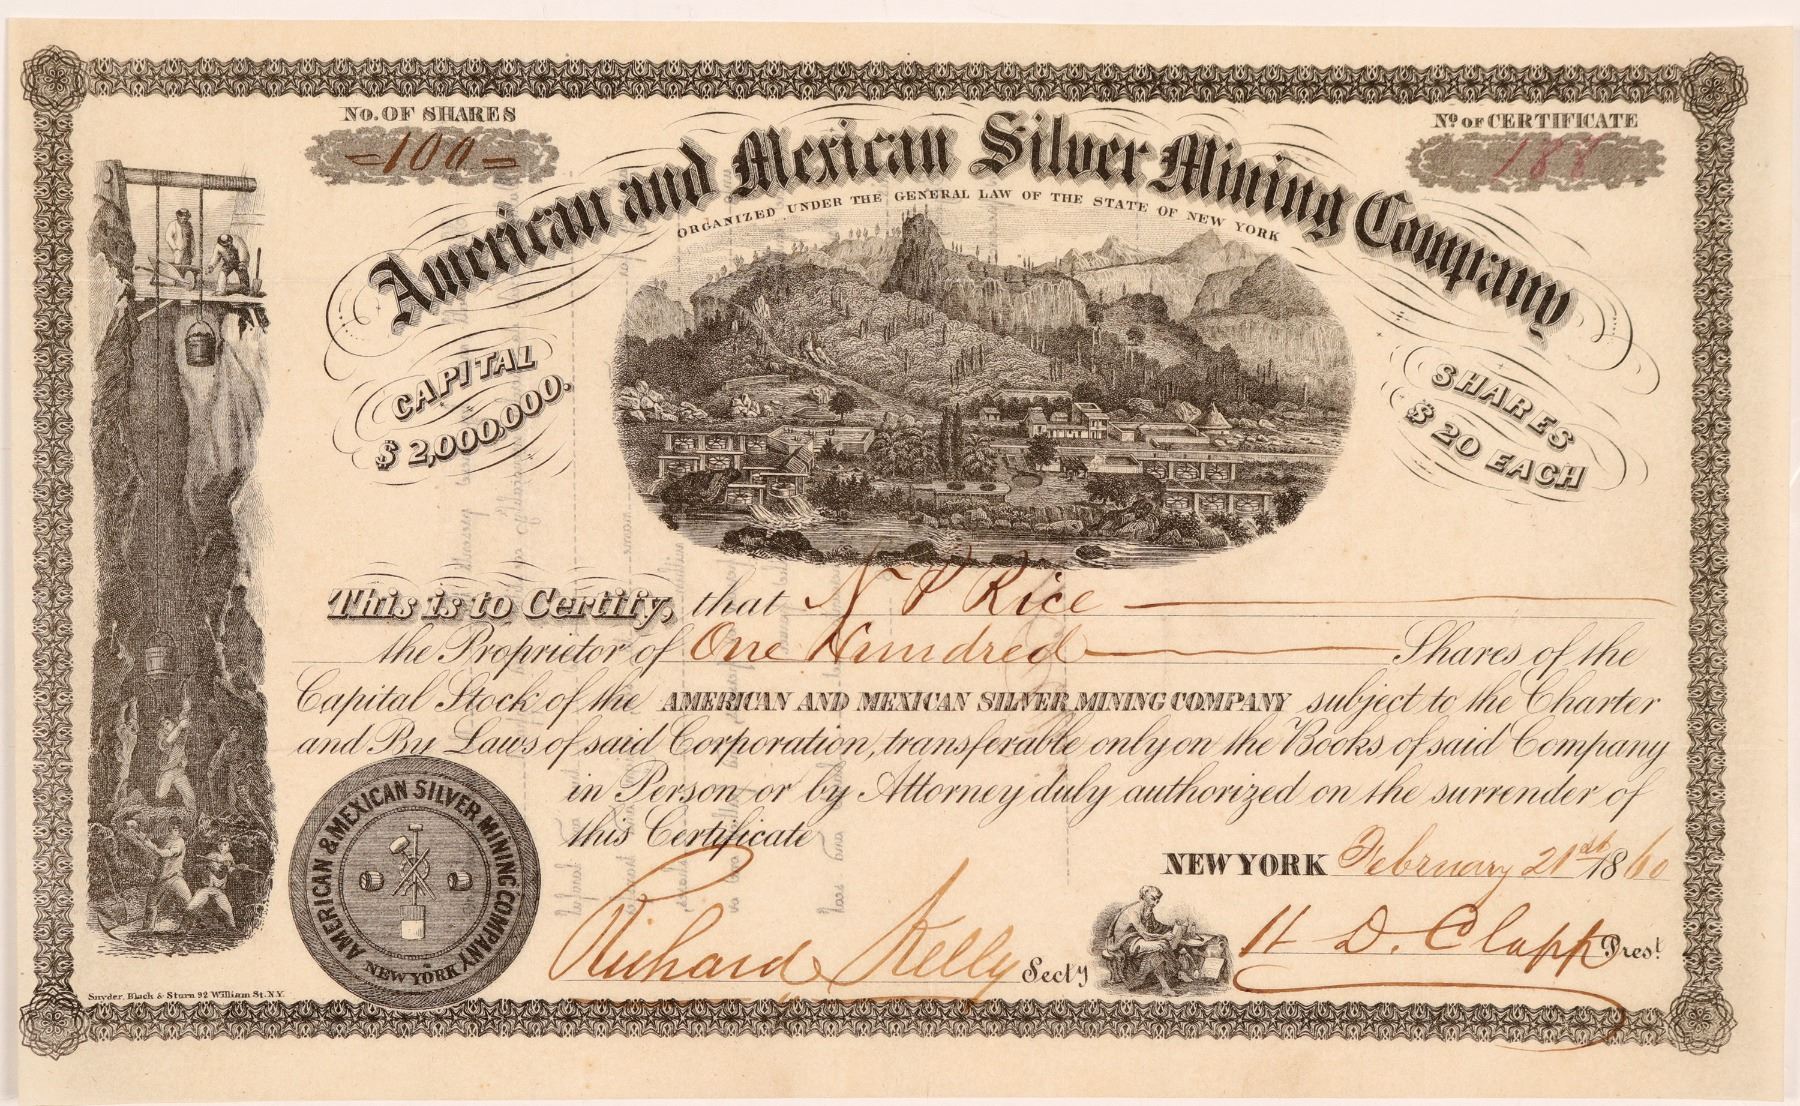 No. OF SHARES
=100=
No OF CERTIFICATE
188
American and Mexican Silver Mining Company
ORGANIZED UNDER THE GENERAL LAW OF THE STATE OF NEW YORK
CAPITAL
$ 2,000,000.
SHARES
$ 20 EACH
This is to Certify, that N P Rice
the Proprietor of One Hundred Shares of the
Capital Stock of the AMERICAN AND MEXICAN SILVER MINING COMPANY subject to the Charter
and By Laws of said Corporation, transferable only on the Books of said Company
in Person or by Attorney duly authorized on the surrender of
this Certificate
NEW YORK February 21st 1860
AMERICAN & MEXICAN SILVER MINING COMPANY
NEW YORK
Richard Kelly Secty
H D. Clapp Prest
Snyder, Black & Sturn 92 William St. N.Y.